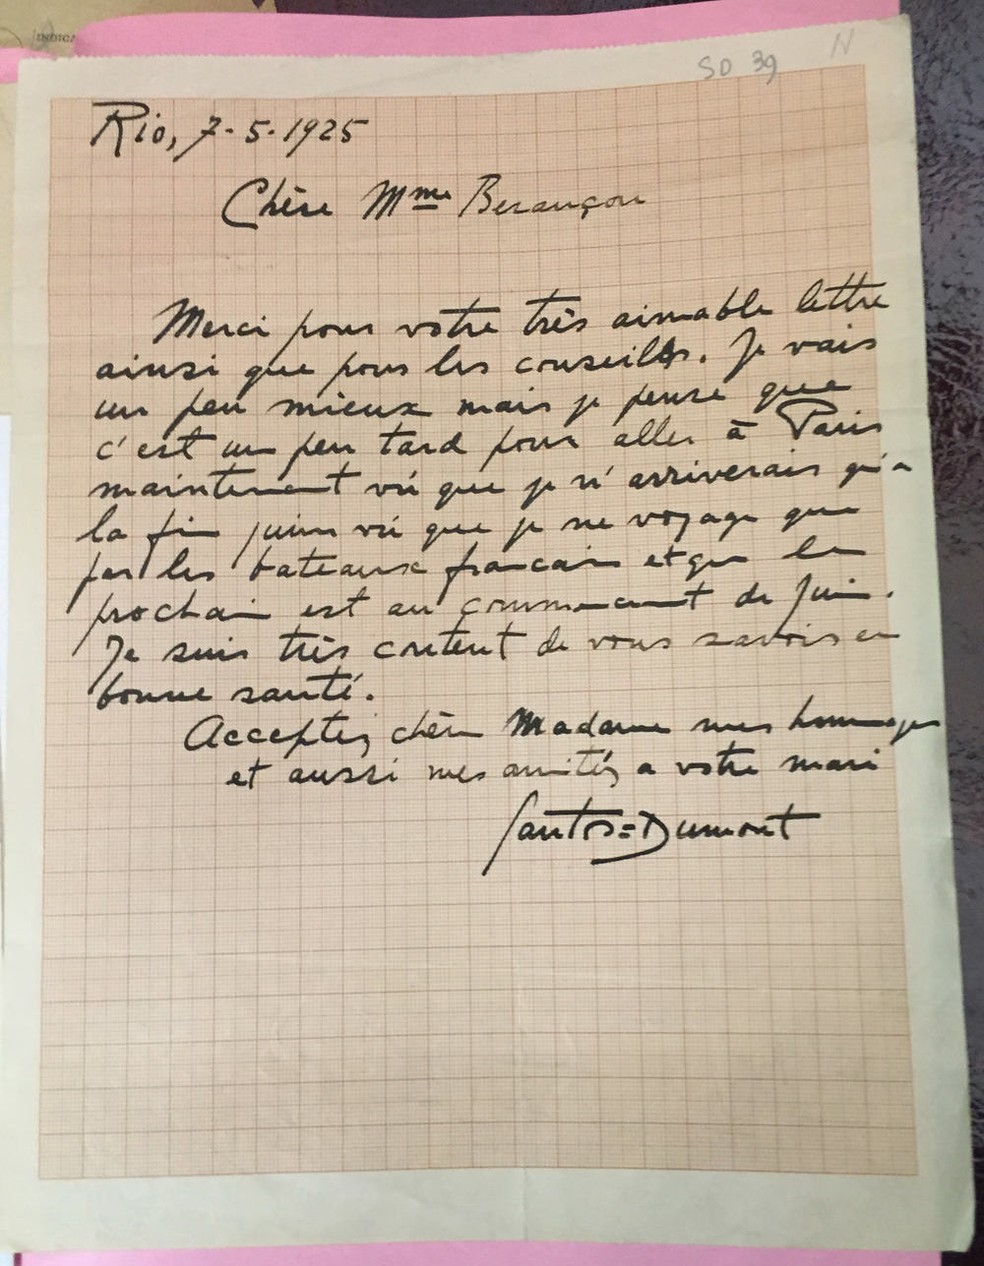 INDICA
SD 39 N
Rio, 7-5-1925
Chère Mme Bezançon
Merci pour votre très aimable lettre
ainsi que pour les conseills. Je vais
un peu mieux mais je pense que
c'est un peu tard pour aller à Paris
maintenant vú que je n'arriverais qu'a
la fin juin vú que je ne voyage que
par les bateaux francais et que le
prochain est au commencement de Juin.
Je suis très content de vous savoir en
bonne santé.
Acceptez chère Madame mes hommages
et aussi mes amitiés a votre mari
Santos=Dumont